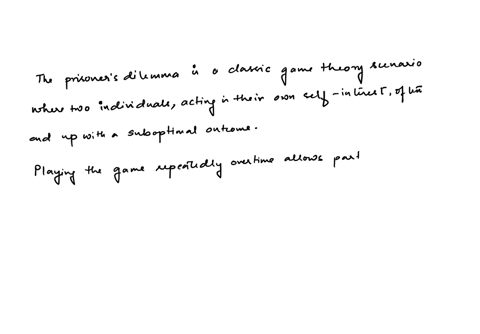 The prisoner's dilemma is a classic game theory scenario
where two individuals, acting in their own self-interest, often
end up with a suboptimal outcome.
Playing the game repeatedly overtime allows part